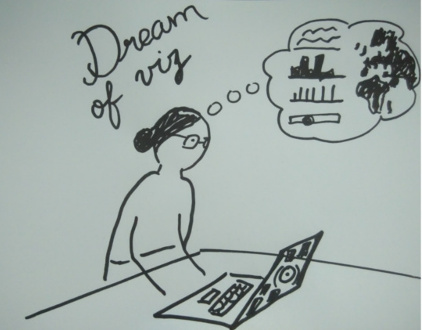 Dream
of viz